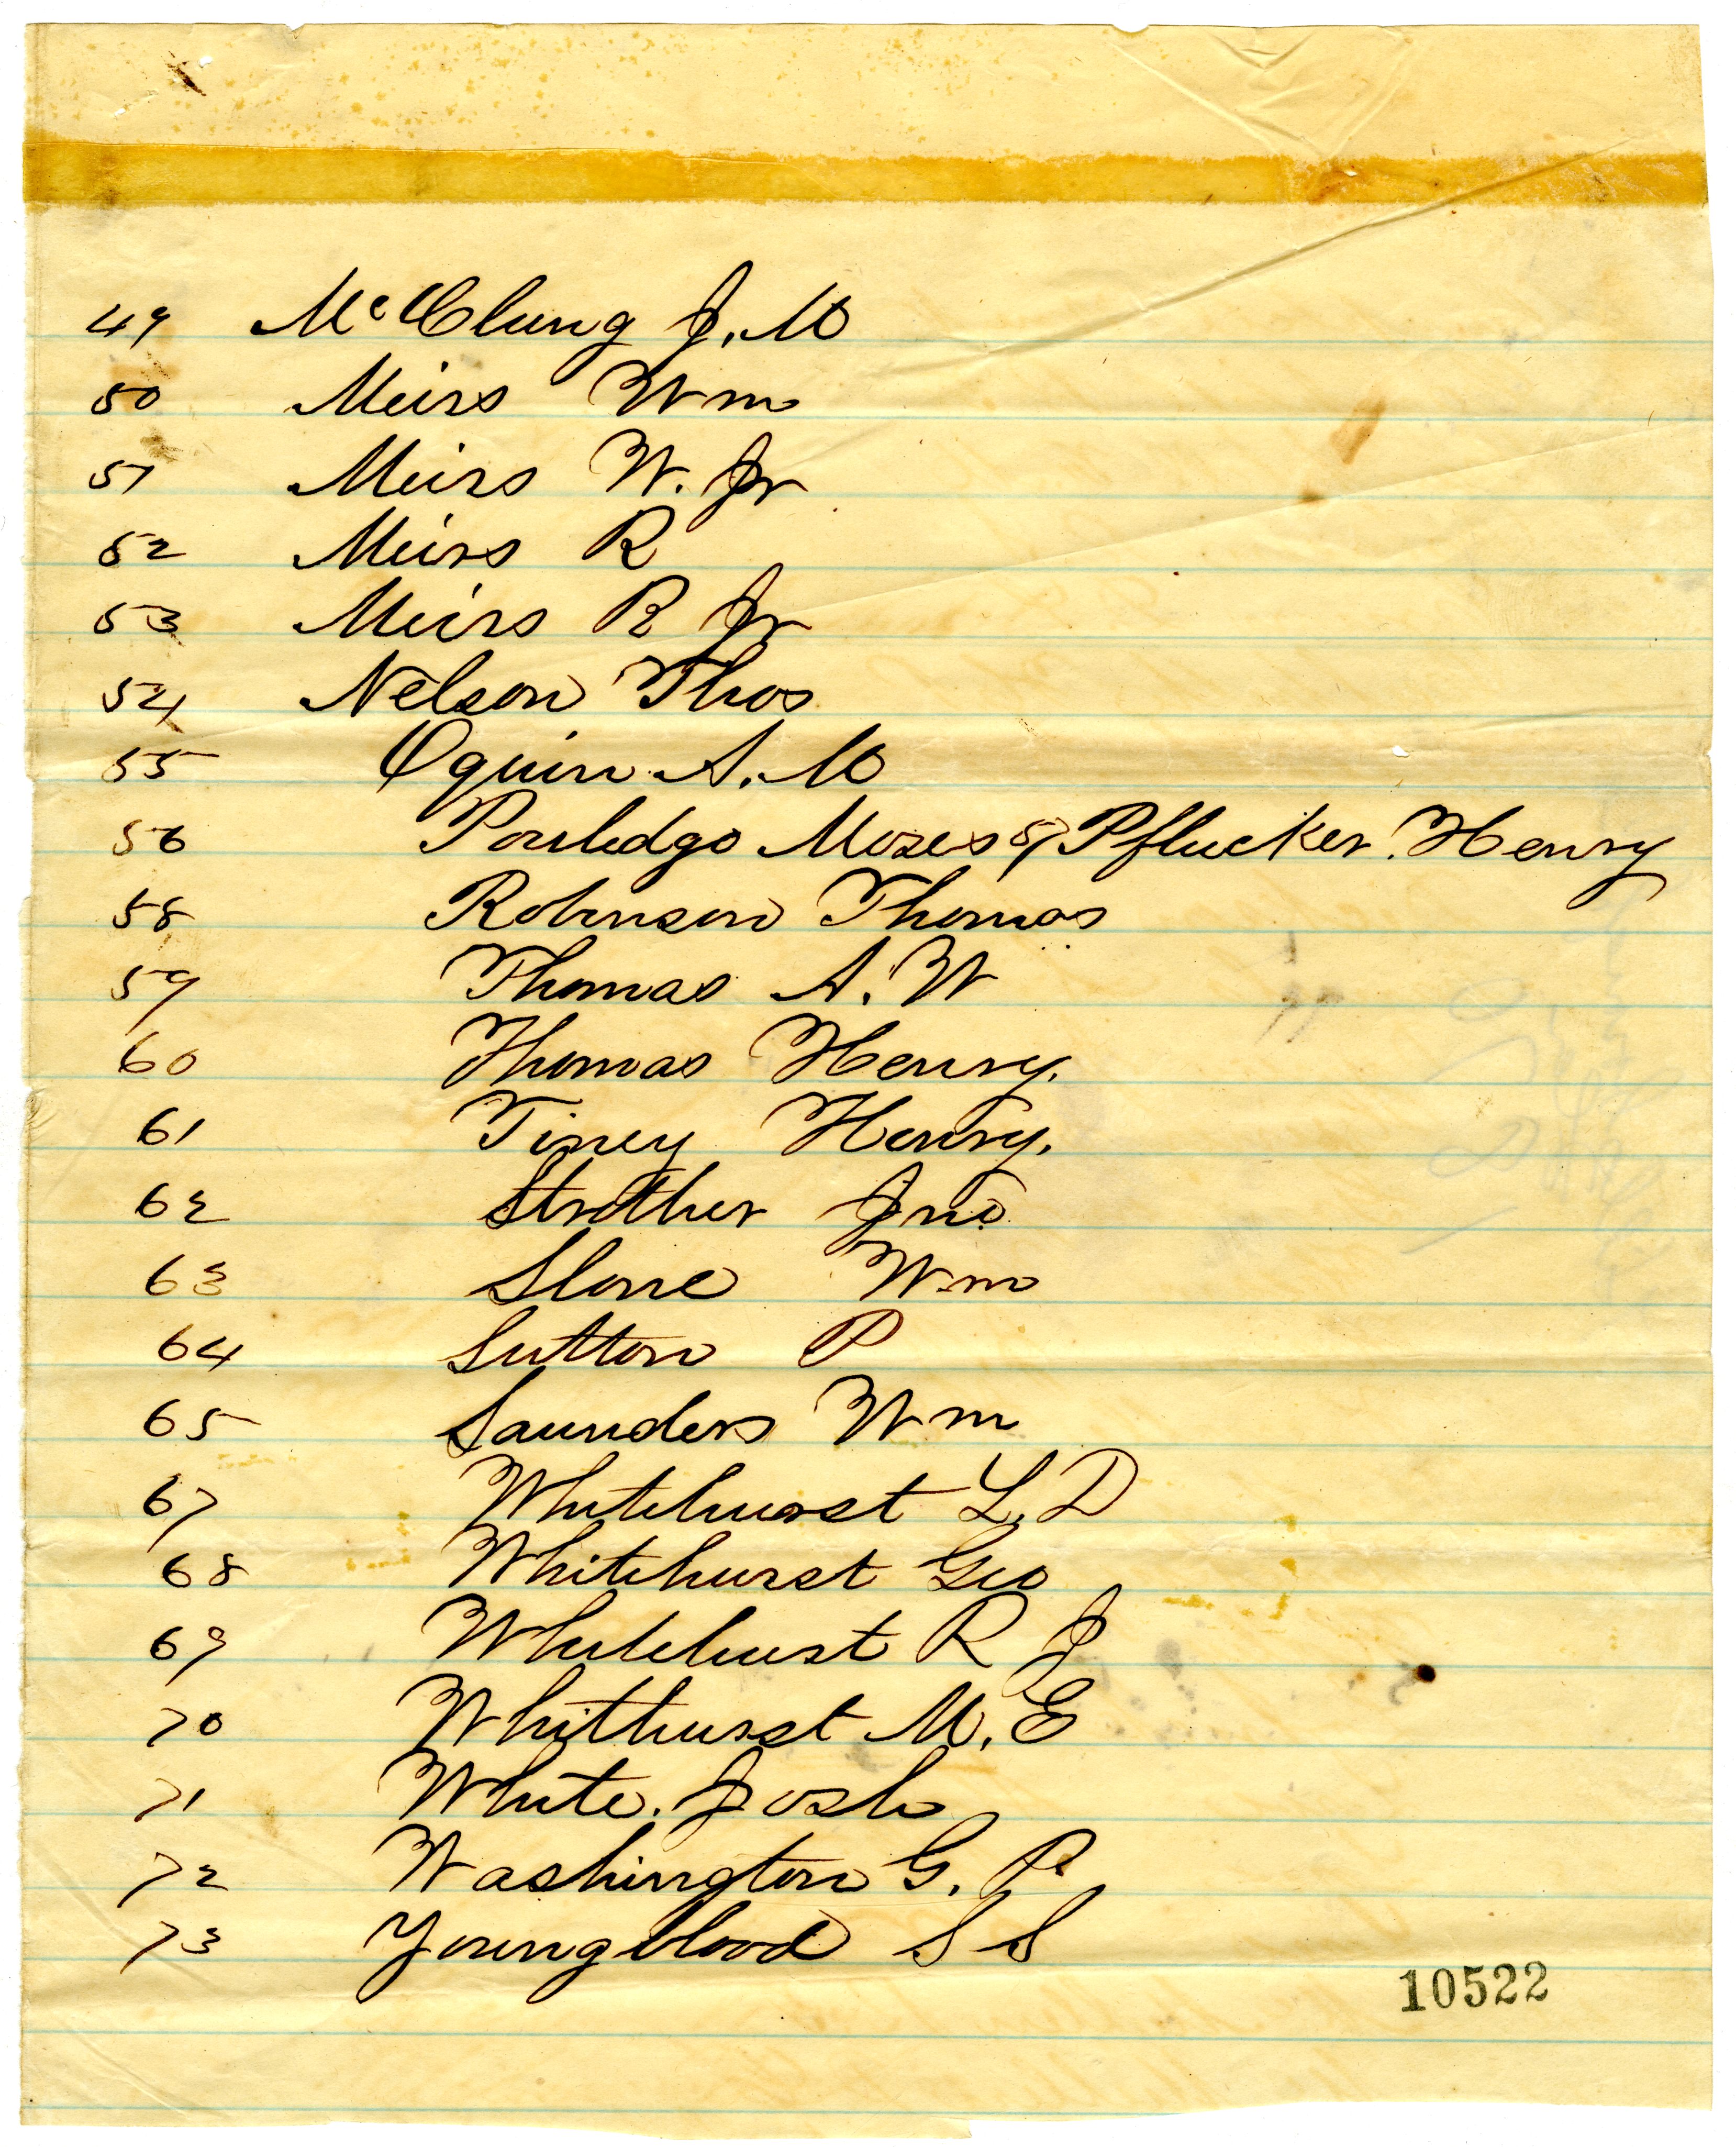 49 McClung J. M
50 Meirs Wm
51 Meirs W. Jr
52 Meirs R
53 Meirs R Jr
54 Nelson Thos
55 Oquin A. M
56 Pouledgo Moses 57 Pflucker Henry
58 Robinson Thomas
59 Thomas A. W
60 Thomas Henry.
61 Tiney Henry.
62 Strother Jno
63 Slone Wm
64 Sutton P
65 Saunders Wm
67 Whitehurst L. D
68 Whitehurst Geo
69 Whitehurst R J
70 Whithurst M. E
71 White. Josh
72 Washington G. P
73 Youngblood S S
10522